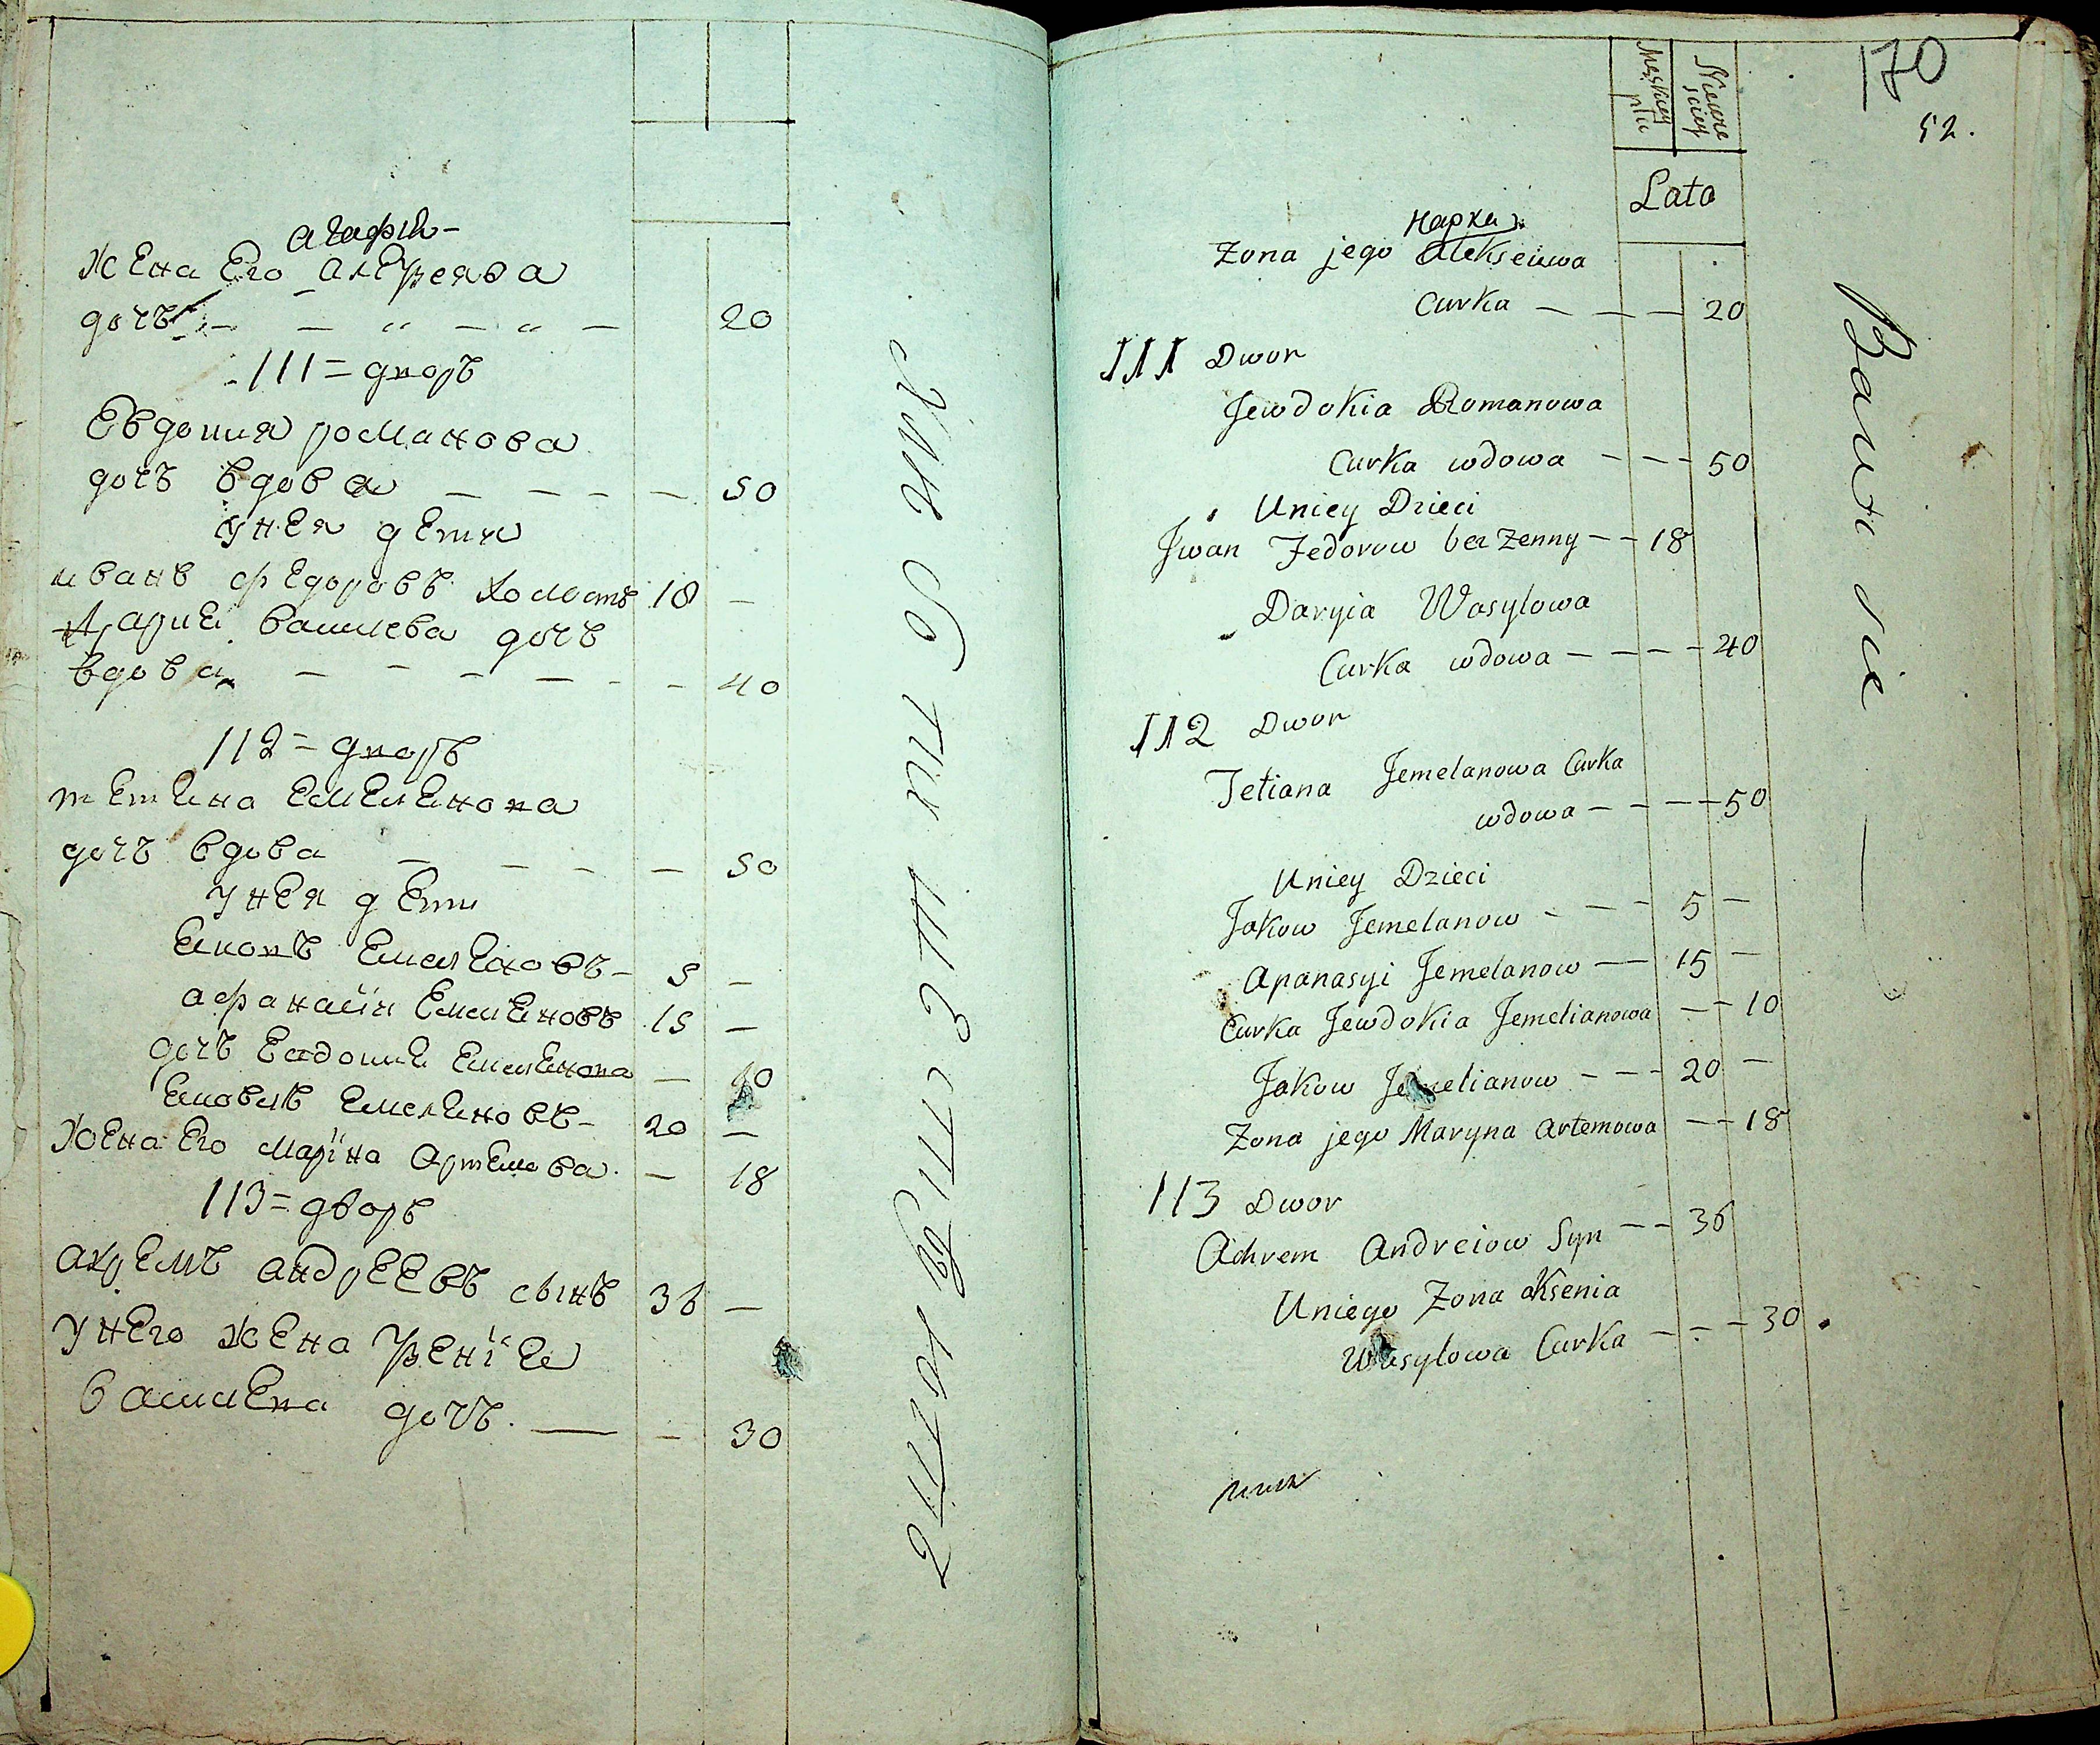 агафія
жена Его алеѯеява
дочъ — — " — " — 20
111 = дворъ
Евдокия романова
дочъ вдова — — — — 50
унея дети
иванъ федоровъ холостъ 18 —
дария василева дочъ
вдова — — — — — — 40
112 = дворъ
тетияна емелянова
дочъ вдова — — — — 50
унея дети
яковъ емеляновъ — 5 —
афанасіи емеляновъ 15 —
дочъ евдокия емелянова — 10
яковъ емеляновъ — 20 —
жена Его маріна артемова — 18
113 = дворъ
ахремъ андреевъ сынъ 36 —
унего жена ѯеніея
василева дочъ. — — 30
170
52.
Męskiey płci
Niewieściey
Lata
марха
Zona jego Alekseiewa
Curka — — — 20
111 Dwor
Jewdokia Romanowa
Curka wdowa — — — 50
Uniey Dzieci
Jwan Fedorow bez Zenny — — 18
Daryia Wasylowa
Curka wdowa — — — — 40
112 Dwor
Tetiana Jemelanowa Curka
wdowa — — — — 50
Uniey Dzieci
Jakow Jemelanow — — — 5 —
Apanasyi Jemelanow — — 15 —
Curka Jewdokia Jemelianowa — — 10
Jakow Jemelianow — — — 20 —
Zona jego Maryna Artemowa — — 18
113 Dwor
Achrem Andreiow Syn — — 36
Uniego Zona Aksenia
Wasylowa Curka — — — 30